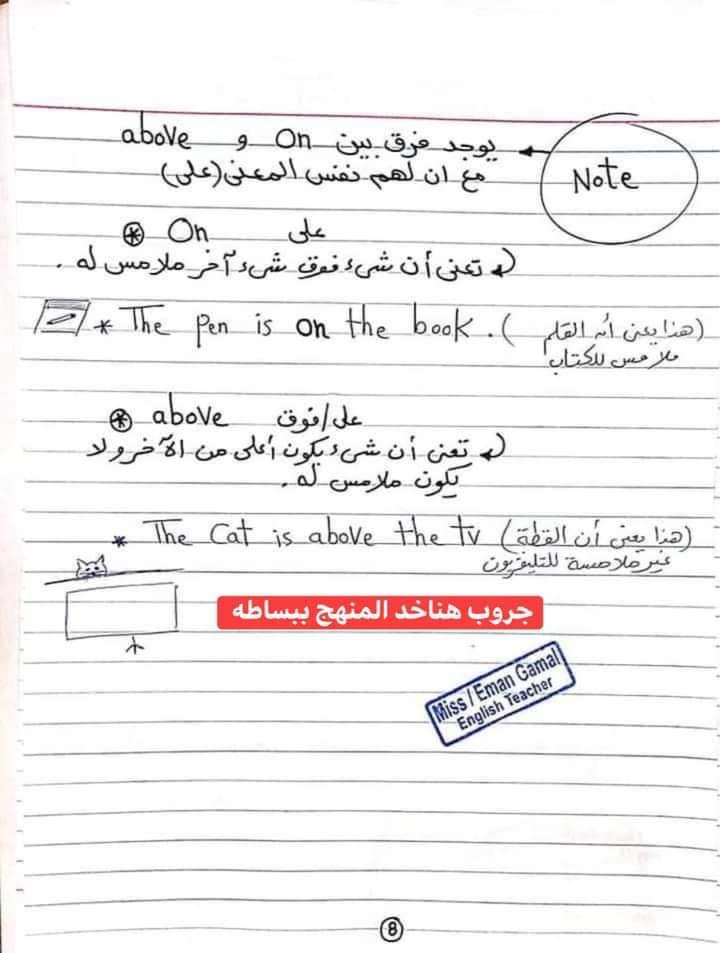 Note
يوجد فرق بين On و above
مع ان لهم نفس المعنى (على)
* On على
تعنى أن شىء فوق شىء آخر ملامس له.
* The pen is on the book. (هذا يعنى أنه القلم
ملامس للكتاب)
* above على/فوق
تعنى أن شىء يكون أعلى من الآخر ولا
يكون ملامس له.
* The cat is above the tv (هذا يعنى أن القطة
غير ملامسة للتليفزيون)
جروب هناخد المنهج ببساطه
Miss / Eman Gamal
English Teacher
8